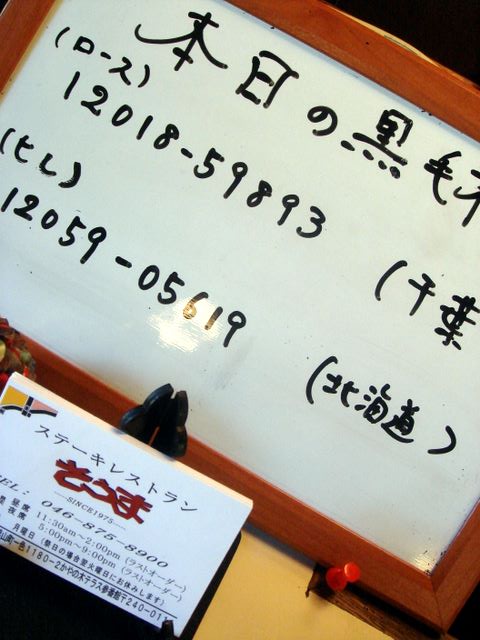 本日の黒毛
(ロース)
12018-59893
(千葉
(ヒレ)
12059-05619
(北海道)
ステーキレストラン
そうま
SINCE1975
TEL: 046-875-8900
昼席 11:30am～2:00pm (ラストオーダー)
夜席 5:00pm～9:00pm (ラストオーダー)
月曜日 (祭日の場合翌火曜日にお休みします)
色1180-2かやの木テラス参番館〒240-011